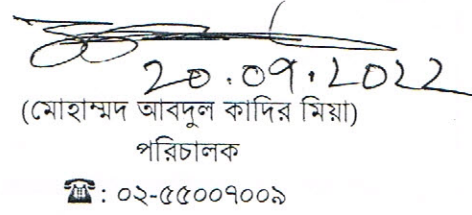 20.09.2022
(মোহাম্মদ আবদুল কাদির মিয়া)
পরিচালক
☎: ০২-৫৫০০৭০০৯